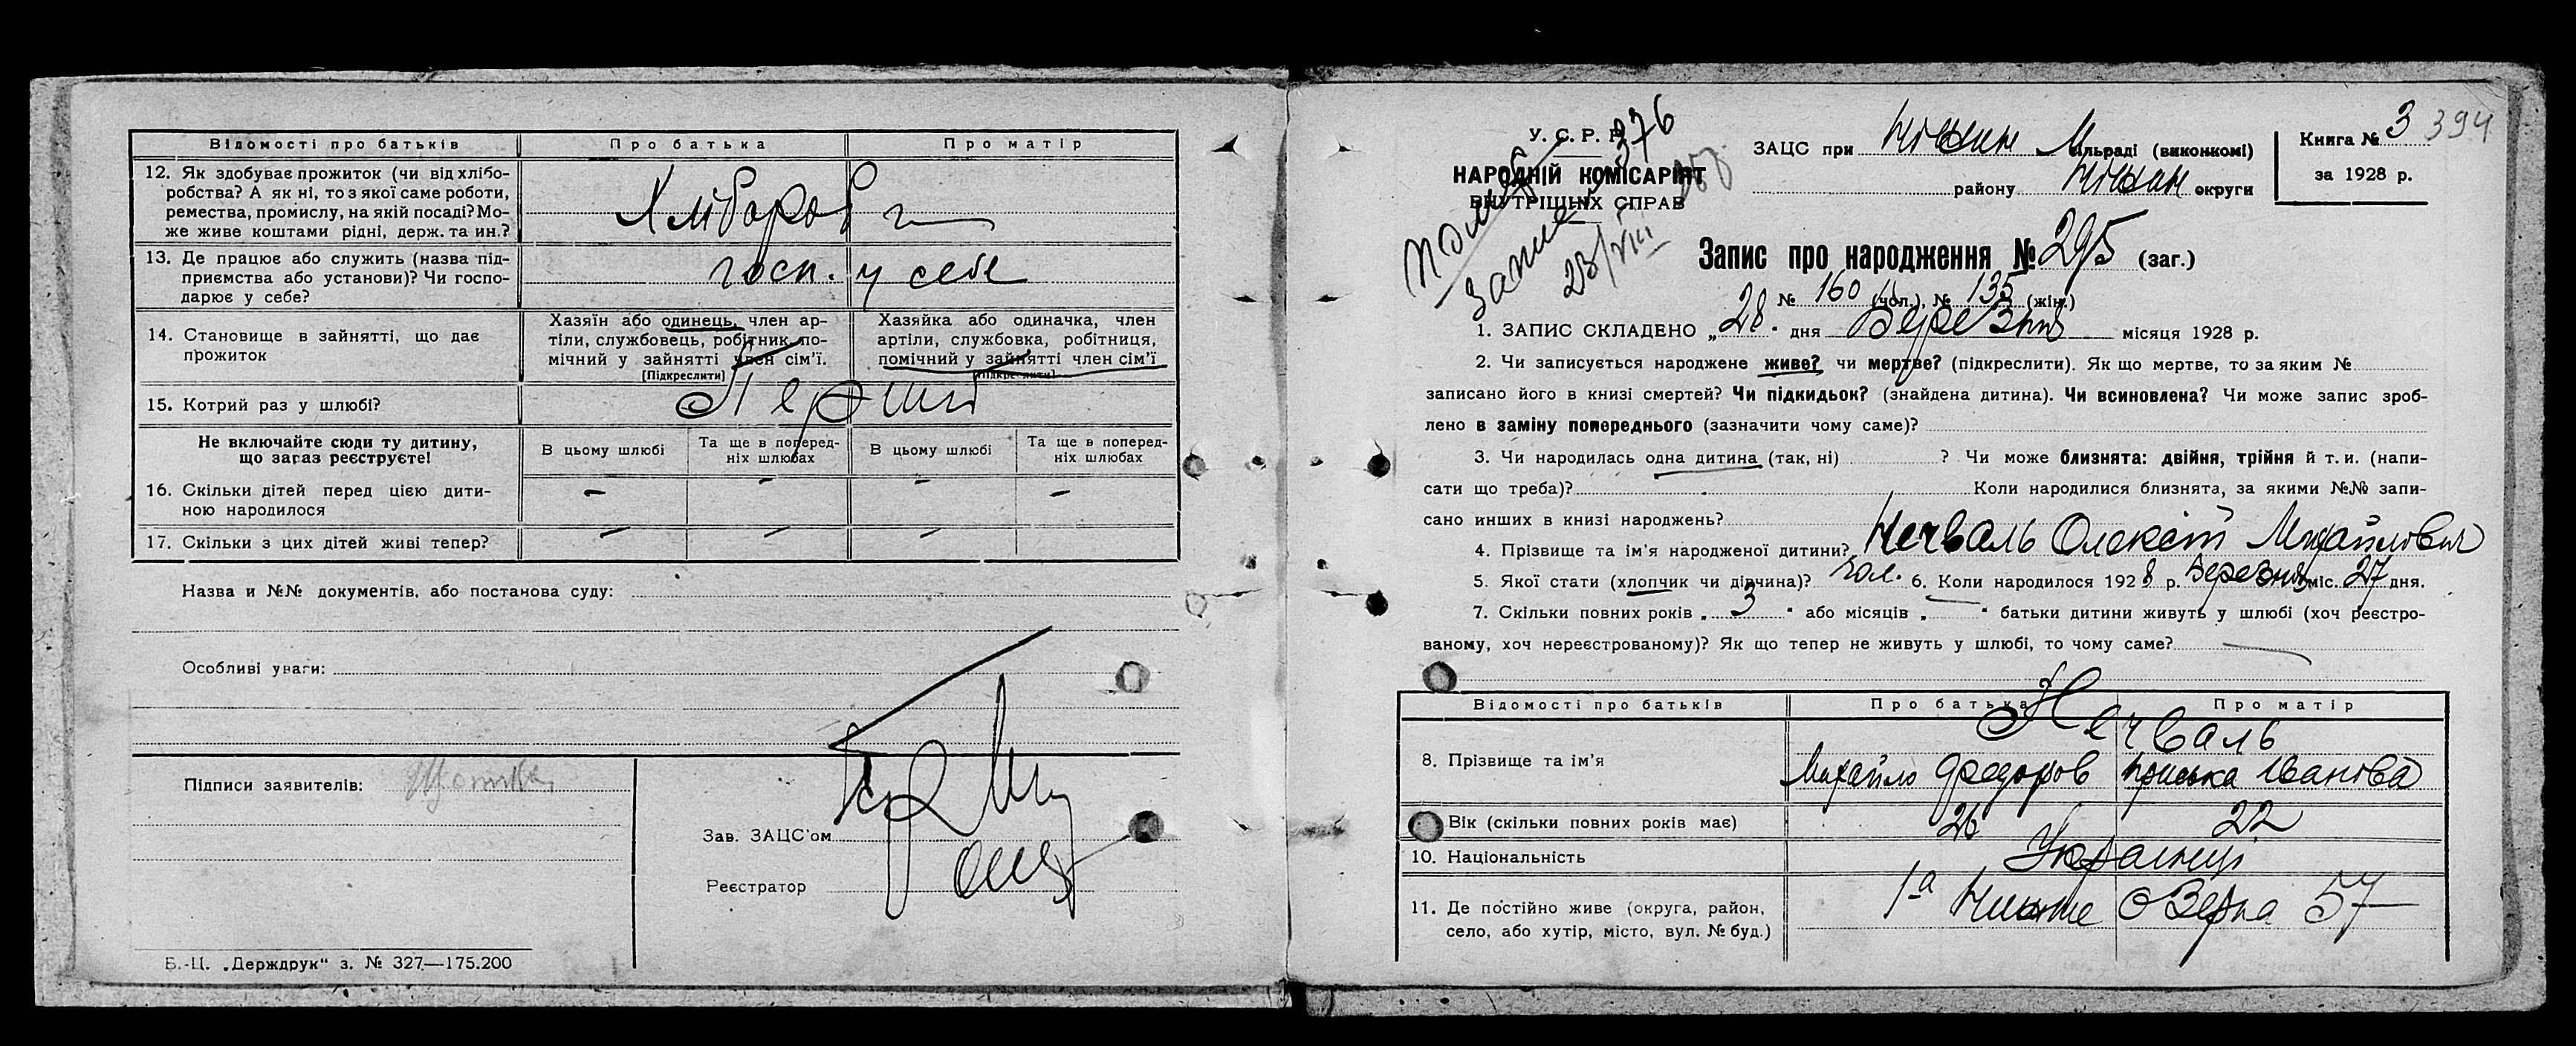 Відомості про батьків
Про батька
Про матір
12. Як здобуває прожиток (чи від хлібо-
робства? А як ні, то з якої саме роботи,
ремества, промислу, на якій посаді? Мо-
же живе коштами рідні, держ. та ин.?
Хлібороб
13. Де працює або служить (назва під-
приємства або установи)? Чи госпо-
дарює у себе?
госп. у себе
14. Становище в зайнятті, що дає
прожиток
Хазяїн або одинець, член ар-
тіли, службовець, робітник, по-
мічний у зайнятті член сім'ї.
[Підкреслити]
Хазяйка або одиначка, член
артіли, службовка, робітниця,
помічний у зайнятті член сім'ї
[Підкреслити]
15. Котрий раз у шлюбі?
Перший
Не включайте сюди ту дитину,
що загаз реєструєте!
В цьому шлюбі
Та ще в поперед-
ніх шлюбах
В цьому шлюбі
Та ще в поперед-
ніх шлюбах
16. Скільки дітей перед цією дити-
ною народилося
– – – –
17. Скільки з цих дітей живі тепер?
– – –
Назва и №№ документів, або постанова суду:
Особливі уваги:
Підписи заявителів:
Зав. ЗАЦС'ом
Реєстратор
Б.-Ц. „Держдрук" з. № 327—175.200
У. С. Р. Р.
НАРОДНІЙ КОМІСАРІЯТ
ВНУТРІШНІХ СПРАВ
376
23/VIII
ЗАЦС при Ніжин М сільраді (виконкомі)
району Ніжин округи
Книга № 3
394
за 1928 р.
Запис про народження № 295 (заг.)
№ 160 (чол.), № 135 (жін.)
1. ЗАПИС СКЛАДЕНО „28" дня Березня місяця 1928 р.
2. Чи записується народжене живе? чи мертве? (підкреслити). Як що мертве, то за яким №
записано його в книзі смертей? Чи підкидьок? (знайдена дитина). Чи всиновлена? Чи може запис зроб-
лено в заміну попереднього (зазначити чому саме)?
3. Чи народилась одна дитина (так, ні) ? Чи може близнята: двійня, трійня й т. и. (напи-
сати що треба)? Коли народилися близнята, за якими №№ запи-
сано инших в книзі народжень?
4. Прізвище та ім'я народженої дитини? Нечваль Олексій Михайлович
5. Якої стати (хлопчик чи дівчина)? чол. 6. Коли народилося 1928 р. Березня міс. 27 дня.
7. Скільки повних років „3" або місяців „—" батьки дитини живуть у шлюбі (хоч реєстро-
ваному, хоч нереєстрованому)? Як що тепер не живуть у шлюбі, то чому саме?
Відомості про батьків
Про батька
Про матір
8. Прізвище та ім'я
Нечваль
Михайло Федоров
Іванова
Вік (скільки повних років має)
26
22
10. Національність
Українці
11. Де постійно живе (округа, район,
село, або хутір, місто, вул. № буд.)
1а Озерна 57